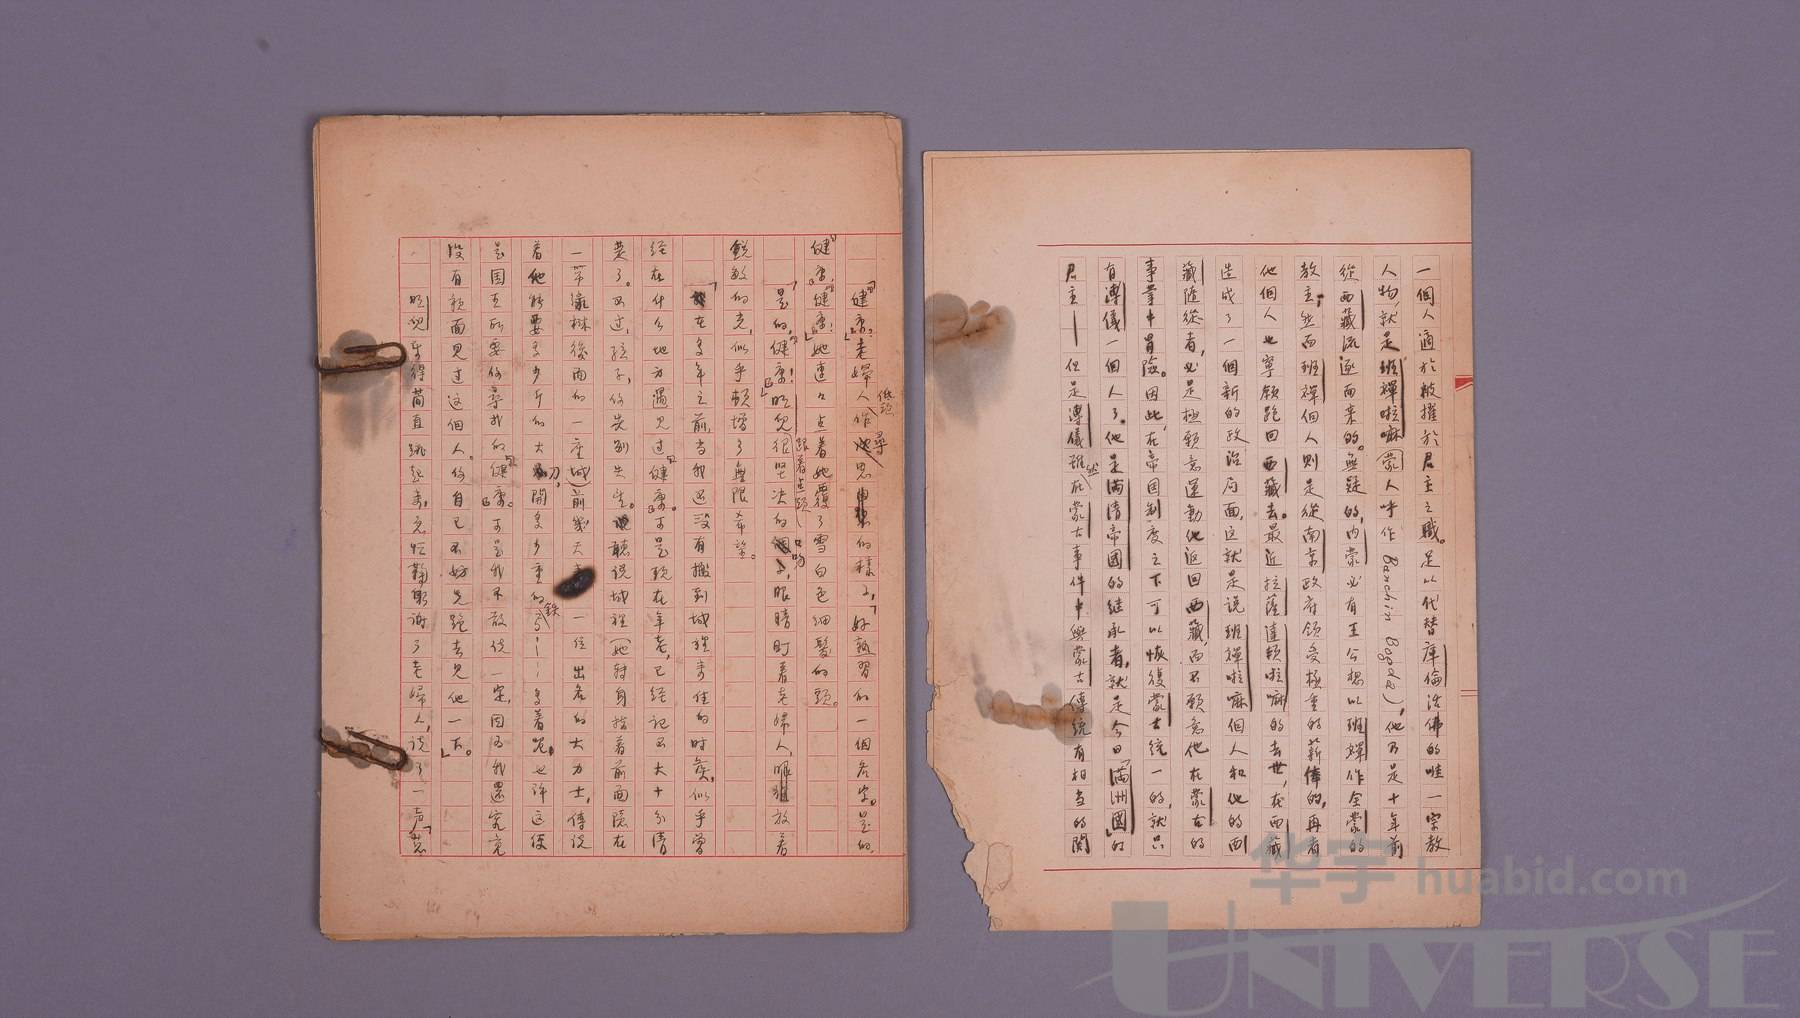 「健康？」老婦人低頭作尋思的樣子，「好熟習的一個名字。是的，
健康，「健康！」她連々点着她覆了雪白色細髮的頭。
「是的，「健康！」」昵倪很坚决的跟着点頭，眼睛盯着老婦人，眼放着
銳敏的光，似乎頓增了無限希望。
「在多年之前，当我还没有搬到城裡來住的时候，似乎曾
经在什么地方遇見过「健康」。可是現在年老，已经记不大十分清
楚了。不过，孩子，你先别失望。聽说城裡（她轉身指着前面隱在
一帶濃林後面的一座城）前幾天一位出名的大力士，傳说
着他能要多少斤的大刀，開多少重的鉄弓……多着呢。也许这便
是国王所要你尋找的「健康」。可是我不敢说一定，因为我還究竟
没有親面見过这個人。你自己不妨先跑去見他一下。」
昵倪生得簡直跳起來，充忙鞠躬谢了老婦人，说了一声「
一個人適於被擢於君主之職。足以代替庫倫活佛的唯一宗教
人物，就是班禪啦嘛（蒙人呼作 Banchin Bogda），他乃是十年前
從西藏流逐而来的。無疑的，内蒙必有王公想以班禪作全蒙的
教主；然而班禪個人则是從南京政府领受極重的薪俸的，再者
他個人也寧願跑回西藏去。最近拉薩達賴啦嘛的去世，在西藏
造成了一個新的政治局面，这就是说班禪啦嘛個人和他的西
藏隨從者，必是極願意運動他返回西藏，而不願意他在蒙古的
事業中冒險。因此，在帝国制度之下可以恢復蒙古统一的，就只
有溥儀一個人了。他是满清帝國的继承者，就是今日「满洲國」的
君主——但是溥儀雖然在蒙古事件中與蒙古傳統有相当的関
华宇 huabid.com
UNIVERSE